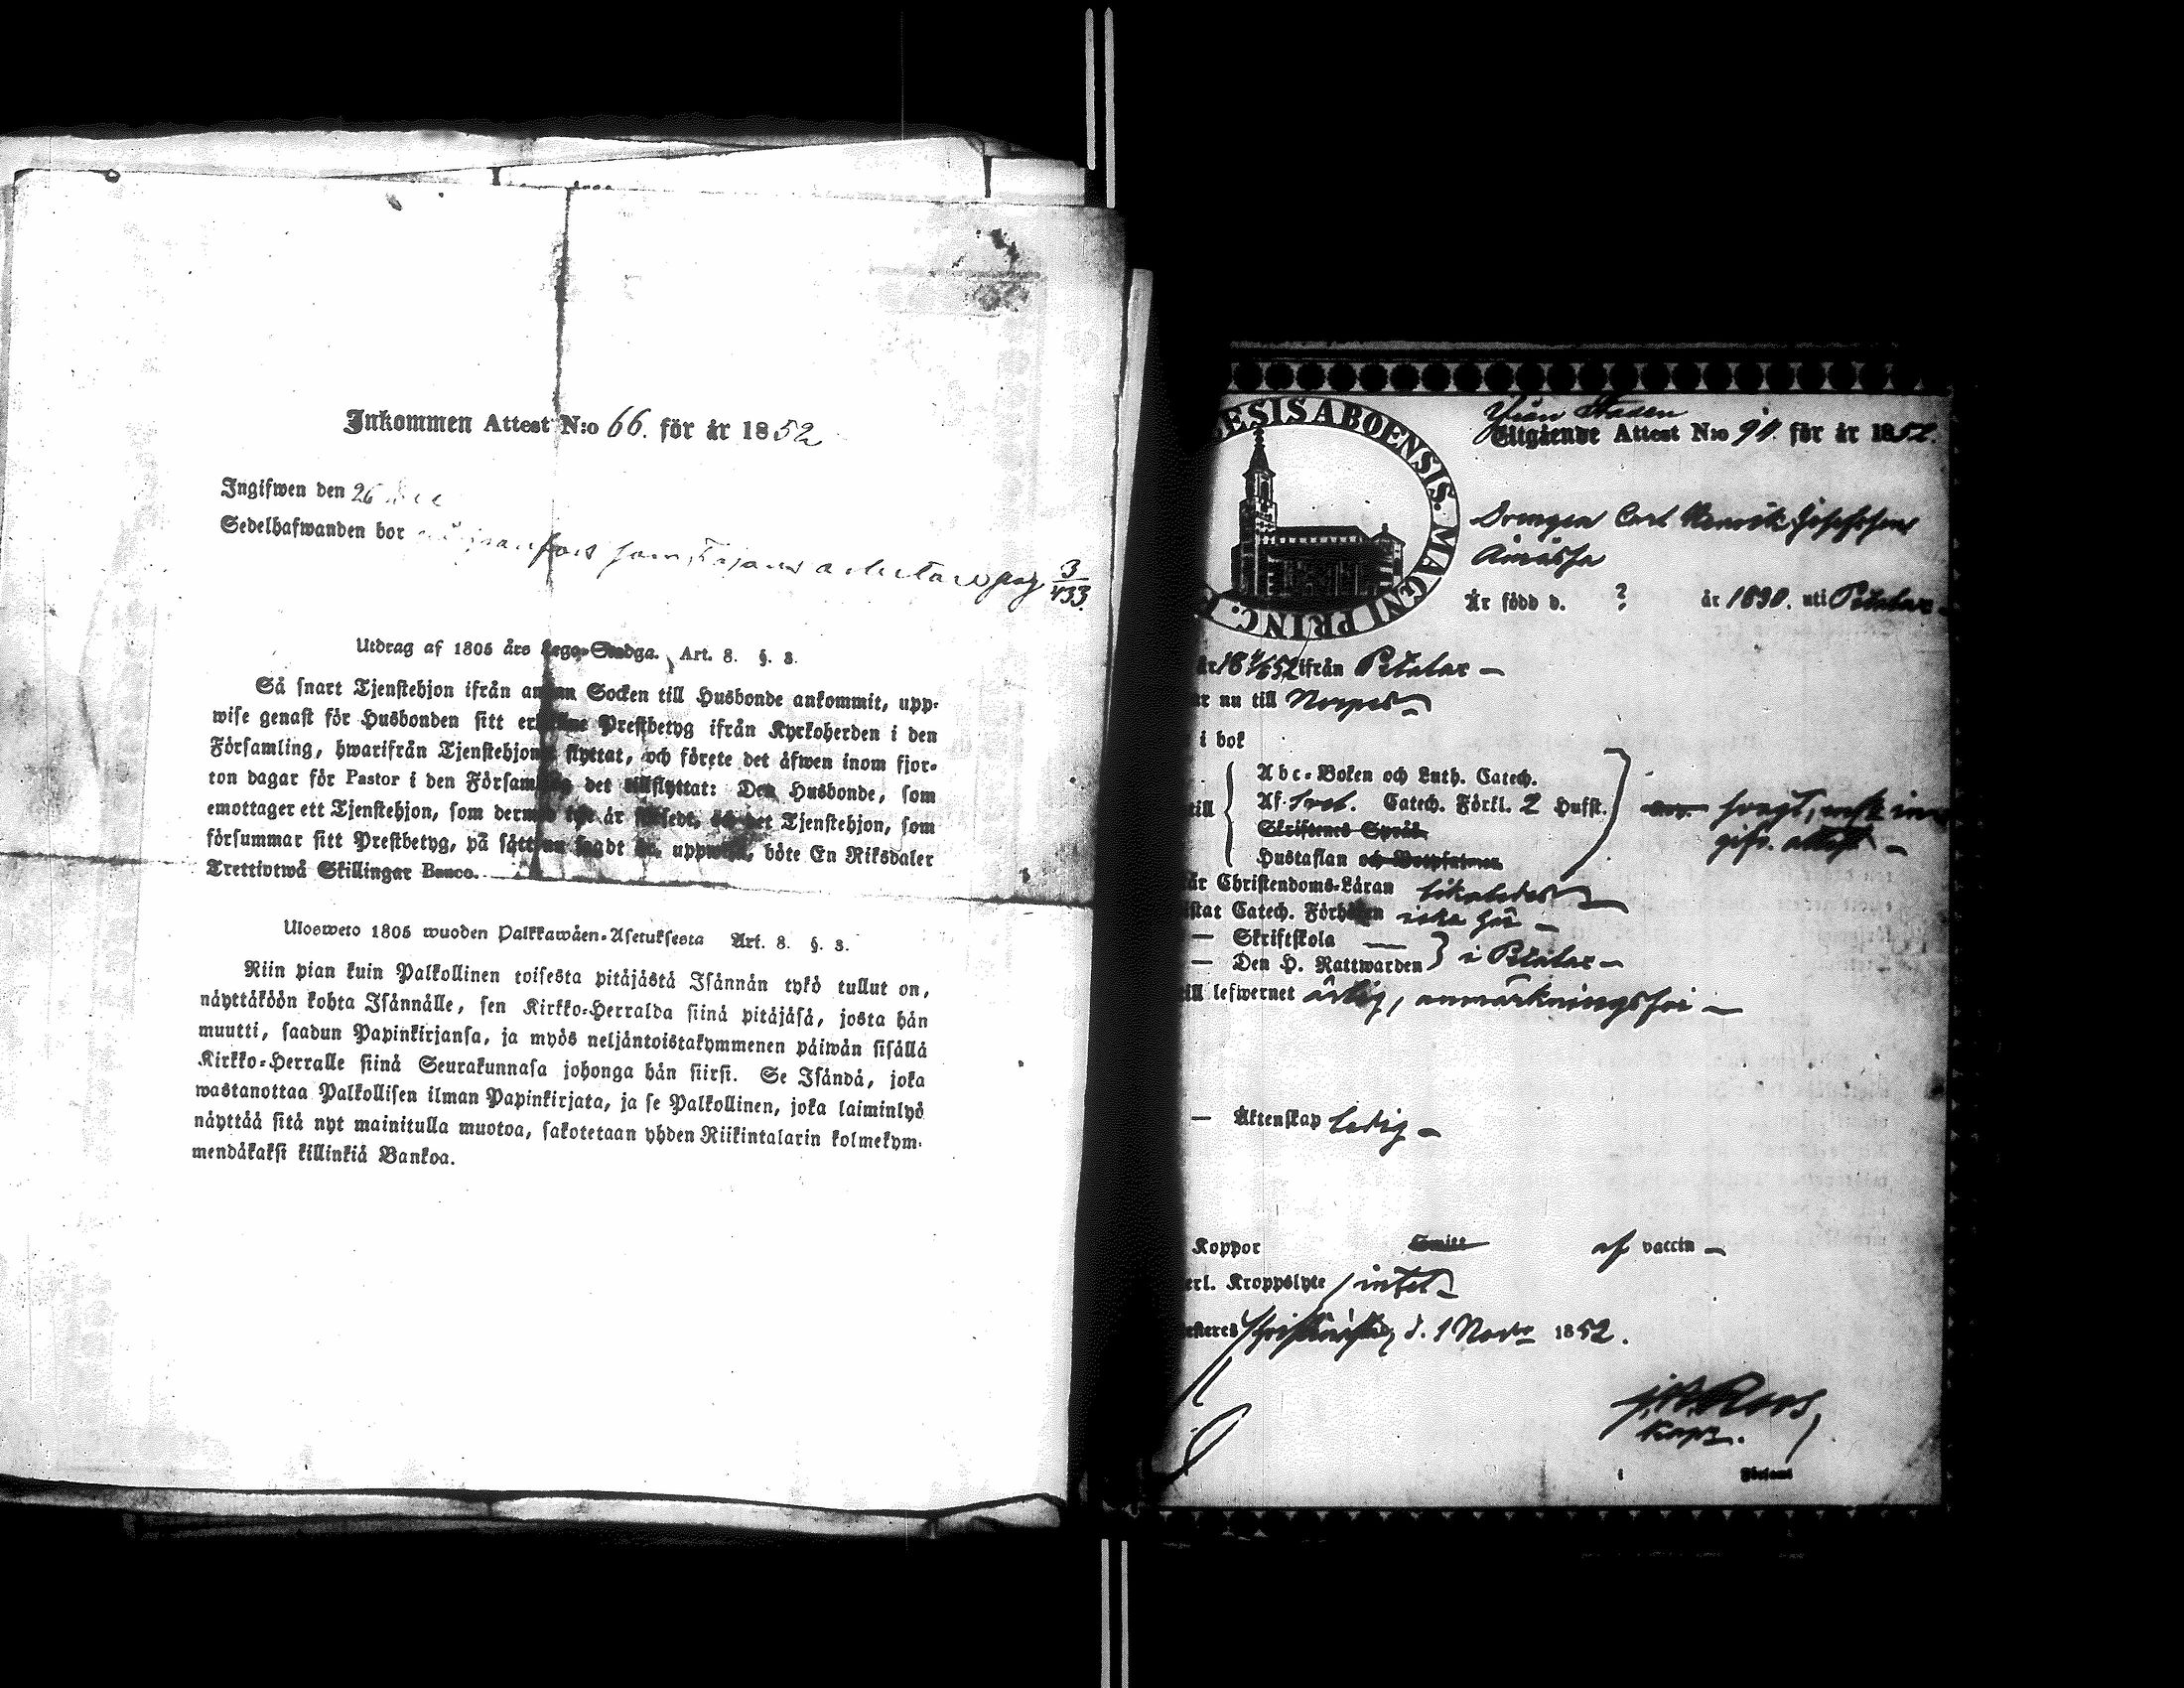 Inkommen Attest N:o 66. för år 1852
Ingifwen den 26
Sedelhafwanden bor pag. 3/433.
Utdrag af 1805 års Lego-Stadga. Art. 8. §. 3.
Så snart Tjenstehjon ifrån annan Socken till Husbonde ankommit, upp-
wise genast för Husbonden sitt erhållne Prestbetyg ifrån Kyrkoherden i den
Församling, hwarifrån Tjenstehjonet flyttat, och förete det äfwen inom fjor-
ton dagar för Pastor i den Församling det tillflyttat: Den Husbonde, som
emottager ett Tjenstehjon, som dermed icke är försedt, och det Tjenstehjon, som
försummar sitt Prestbetyg, på sätt nu sagdt är, uppwisa, böte En Riksdaler
Trettiotwå Skillingar Banco.
Ulosweto 1805 wuoden Palkkawäen-Asetuksesta Art. 8. §. 3.
Niin pian kuin Palkollinen toisesta pitäjästä Isännän tykö tullut on,
näyttäköön kohta Isännälle, sen Kirkko-Herralda siinä pitäjäsä, josta hän
muutti, saadun Papinkirjansa, ja myös neljäntoistakymmenen päiwän sisällä
Kirkko-Herralle siinä Seurakunnasa johonga hän siirsi. Se Isändä, joka
wastanottaa Palkollisen ilman Papinkirjata, ja se Palkollinen, joka laiminlyö
näyttää sitä nyt mainitulla muotoa, sakotetaan yhden Riikintalarin kolmekym-
mendäkaksi killinkiä Bankoa.
ESIS ABOENSIS. MAGNI PRINC. F
Från Staden
Utgående Attest N:o för år 1852.
Drengen Carl Henrik Josefsson
Är född d. ? år 1830. uti Pörtom
ifrån
nu till Nerpes
i bok
Abc-Boken och Luth. Catech.
Af Catech. Förkl. 2 Hufst.
Skriftenes Språk
Hustaflan och
till
är Christendoms-Läran likaledes
Catech. Förhören icke här
— Skriftskola —
— Den H. Nattwarden
i
till lefwernet ärlig, anmärkningsfri
— Äktenskap ledig
Koppor af vaccin
Kroppslyte intet
d. 1 Novbr 1852.
Roos,
Kapl.